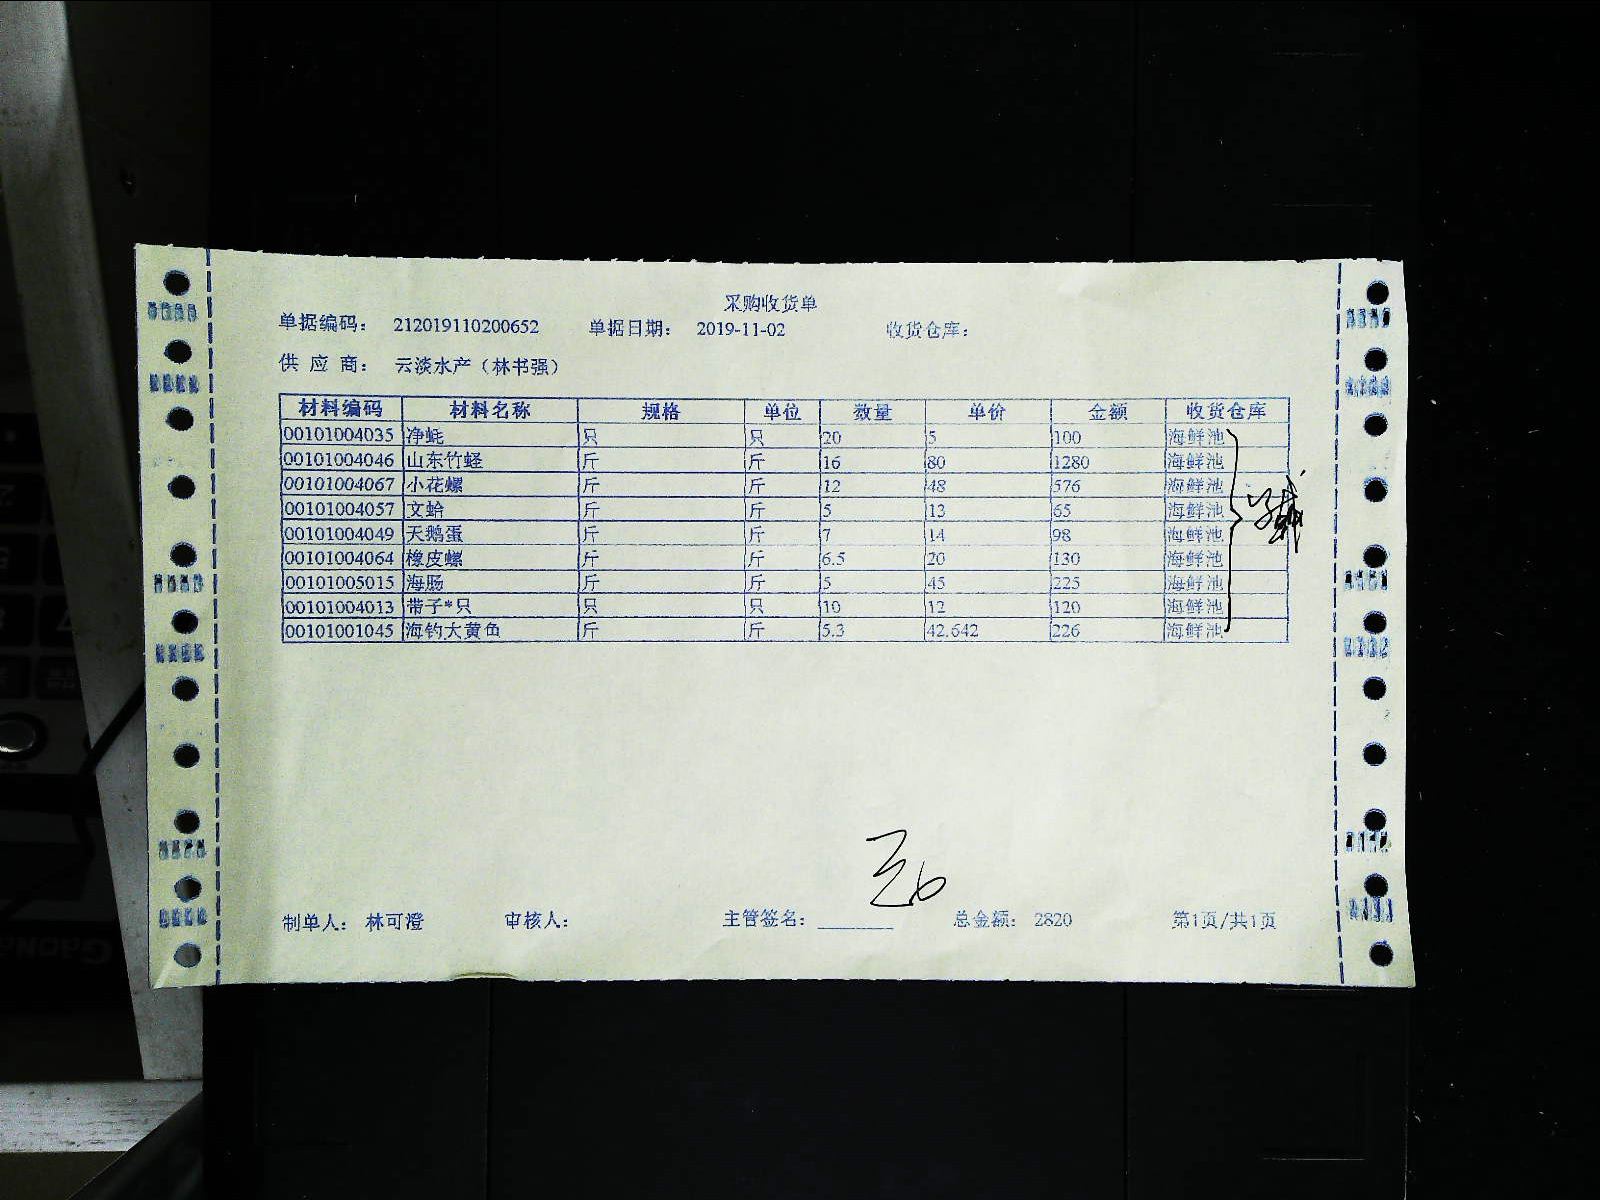 采购收货单
单据编码： 212019110200652 单据日期： 2019-11-02 收货仓库：
供 应 商： 云淡水产（林书强）
材料编码 材料名称 规格 单位 数量 单价 金额 收货仓库
00101004035 净蚝 只 只 20 5 100 海鲜池
00101004046 山东竹蛏 斤 斤 16 80 1280 海鲜池
00101004067 小花螺 斤 斤 12 48 576 海鲜池
00101004057 文蛤 斤 斤 5 13 65 海鲜池
00101004049 天鹅蛋 斤 斤 7 14 98 海鲜池
00101004064 橡皮螺 斤 斤 6.5 20 130 海鲜池
00101005015 海肠 斤 斤 5 45 225 海鲜池
00101004013 带子*只 只 只 10 12 120 海鲜池
00101001045 海钓大黄鱼 斤 斤 5.3 42.642 226 海鲜池
制单人： 林可澄 审核人： 主管签名：________ 总金额： 2820 第1页/共1页